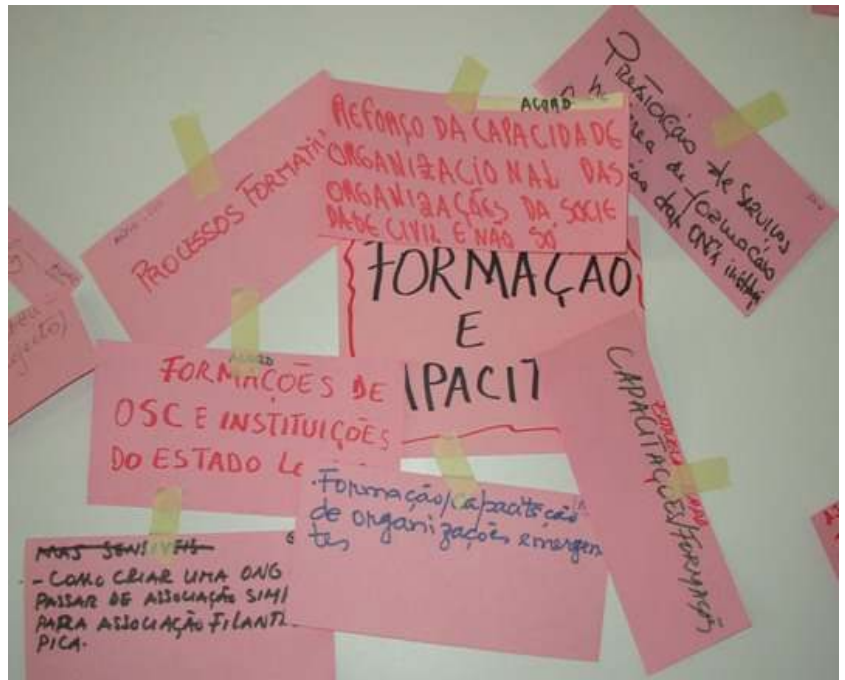 ACORD
REFORÇO DA CAPACIDADE
ORGANIZACIONAL DAS
ORGANIZAÇÕES DA SOCIE
DADE CIVIL E NÃO SÓ
PROCESSOS FORMATI
PRESTAÇÃO de SERVIÇOS
área de formação
das ONG's
FORMAÇÃO
E
APACIT
ACORD
FORMAÇÕES DE
OSC E INSTITUIÇÕES
DO ESTADO
CAPACITAÇÕES/FORMAÇÕES
.Formação/capacitação
de organizações emergen
tes
MAS SENSIVEIS
- COMO CRIAR UMA ONG
PASSAR DE ASSOCIAÇÃO
PARA ASSOCIAÇÃO FILANTR
PICA.